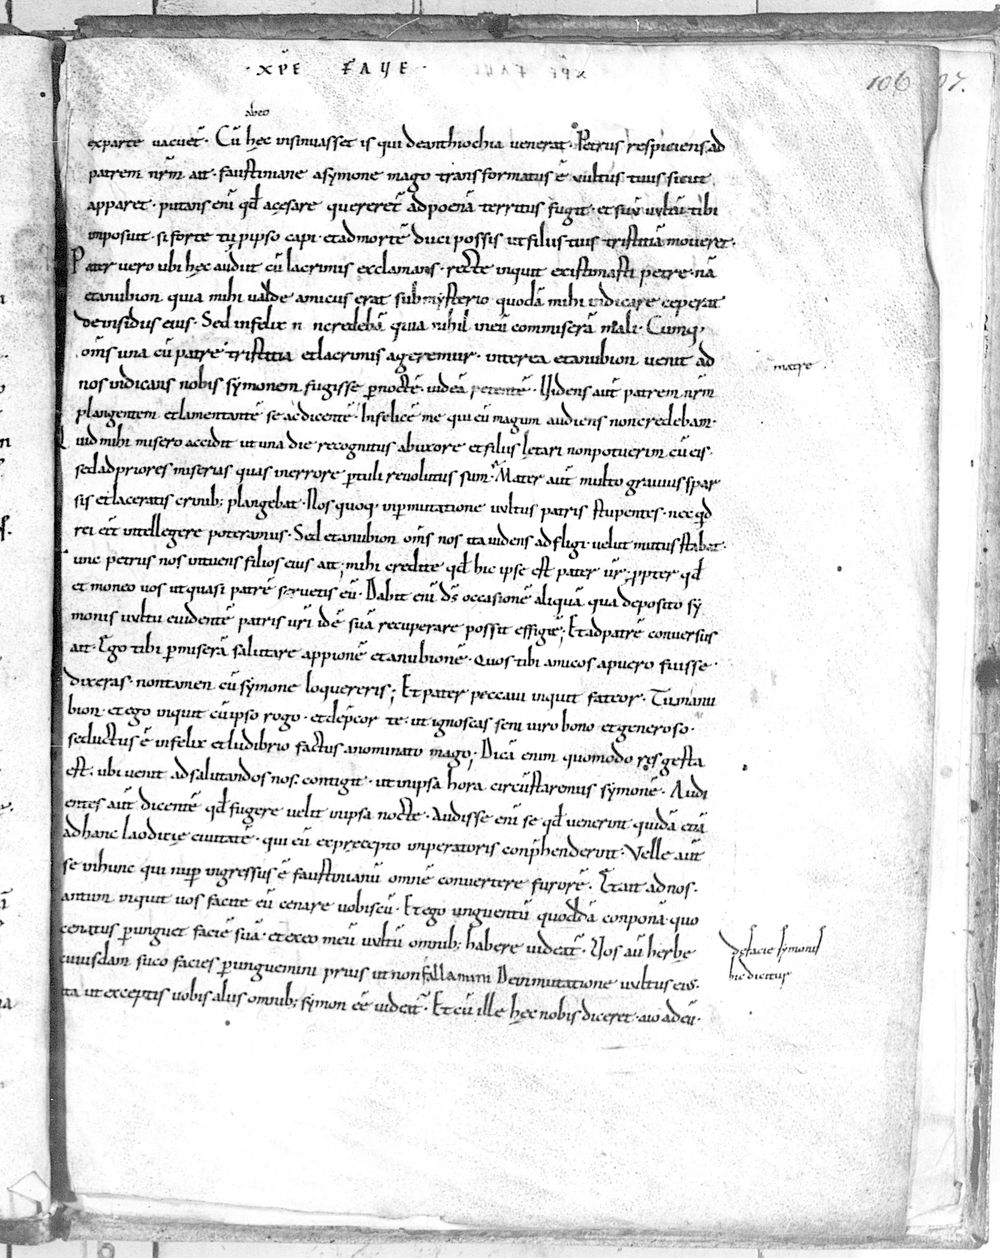 ·XPE FAYE·
106 07.
exparte vacuet̄· Cū hęc insinuasset is qui deanthiochia venerat· Petrus respiciens ad
patrem nr̄m ait· faustiniane asymone mago transformatus ē vultus tuus sicut
apparet· putans eni qđ acęsare quereret̄ adpoenā territus fugit· et suū vultū tibi
inposuit· si forte tu pipso capi· etadmortē duci possis ut filiis tuis tristitiā moveret·
Pater vero ubi hęc audivit cū lacrimis exclamans· recte inquit existimasti petre· nā
etanubion quia mihi valde amicus erat submysterio quodā mihi indicare ceperat
deinsidiis eius· Sed infelix n̄ncredebā quia nihil ineū commiserā mali· Cumq;
om̄s una cū patre tristitia etlacrimis ageremur· interea etanubion venit ad
matre·
nos indicans nobis symonem fugisse p̄noctē· iudeā petentē· Videns aut̄ patrem nr̄m
plangentem etlamentantē se acdicentē· Infelicē me qui cū magum audiens noncredebam·
Quid mihi misero accidit ut una die recognitus abuxore et filiis lętari nonpotuerim cū eis·
sedadpriores miserias quas inerrore p̄tuli revolutus sum· Mater aut̄ multo gravius spar
sis etlaceratis crinib; plangebat· Nos quoq· inp̄mutatione vultus patris stupentes· nec qid
rei eēt intellegere poteramus· Sed etanubion om̄s nos ita videns adfligi· velut mutus stabat·
une petrus nos intuens filios eius ait; mihi credite qđ hic ipse est pater vr̄; p̄pter qđ
et moneo vos ut quasi patrē servetis eū· Dabit eni d̄s occasionē aliquā qua deposito sy
monis vultu evidentē patris vr̄i idē suā recuperare possit effigiē; Et ad patrē conversus
ait· Ego tibi p̄miserā salutare appionē etanubionē· Quos tibi amicos apuero fuisse·
dixeras· nontamen cū symone loquereris; Et pater peccavi inquit fateor· Tum anu
bion· et ego inquit cū ipso rogo· et dep̄cor te: ut ignoscas seni viro bono et generoso·
seductus ē infelix etludibrio factus anominato mago; Dicā enim quomodo res gesta
est: ubi venit adsalutandos nos: contigit· ut in ipsa hora circūstaremus symonē· Audi
entes aut̄ dicentē qđ fugere velit inipsa nocte· Audisse eni se qđ venerint quidā etiā
adhanc laodiciē civitatē· qui eū exprecepto inperatoris conp̄henderint· Velle aut̄
se inhunc qui nup̄ ingressus ē faustinianū omnē convertere furorē· Et ait adnos·
antum inquit vos facite eū cenare vobiscū· Et ego unguentū quoddā conponā· quo
cenatus p̄unguet faciē suā· et exeo meū vultū omnib; habere videat̄· Vos aū herbę
de facie symonis
hic dicitus
cuiusdam suco facies p̄unguemini prius ut non fallamini Deinmutatione vultus eius·
ita ut exceptis vobis aliis omnib; symon eē videat̄· Et cū ille hęc nobis diceret· aio ad eū·